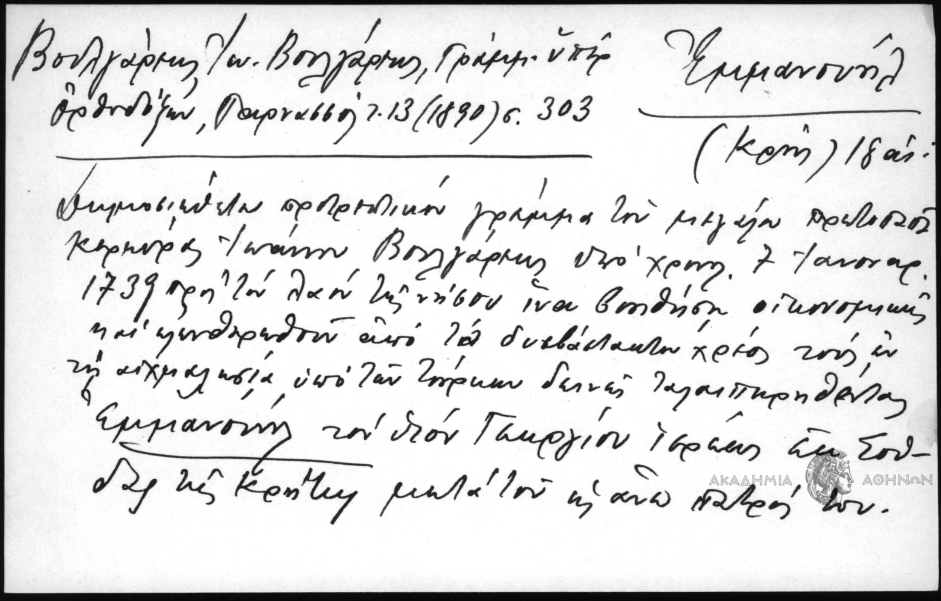 Βουλγάρεως Ἰω. Βουλγάρεως, Γράμμ. ὑπὲρ
Ὀρθοδόξων, Παρνασσὸς τ. 13 (1890) σ. 303
Ἐμμανουήλ
(Κρής) 18 αἰ.
Δημοσιεύεται προτρεπτικὸν γράμμα τοῦ μεγάλου πρωτοπαπᾶ
Κερκύρας Ἰωάννου Βουλγάρεως ὑπὸ χρονολ. 7 Ἰανουαρ.
1739 πρὸς τὸν λαὸν τῆς νήσου ἵνα βοηθήσῃ οἰκονομικῶς
καὶ ἐλευθερωθοῦν ἀπὸ τὸ δυσβάστακτον χρέος τοὺς ἐν
τῇ αἰχμαλωσίᾳ ὑπὸ τῶν Τούρκων δεινῶς ταλαιπωρηθέντας
Ἐμμανουήλ τὸν υἱὸν Γεωργίου ἱερέως ἐκ Σού-
δας τῆς Κρήτης μετὰ τοῦ ὡς ἄνω πατρός του.
ΑΚΑΔΗΜΙΑ ΑΘΗΝΩΝ